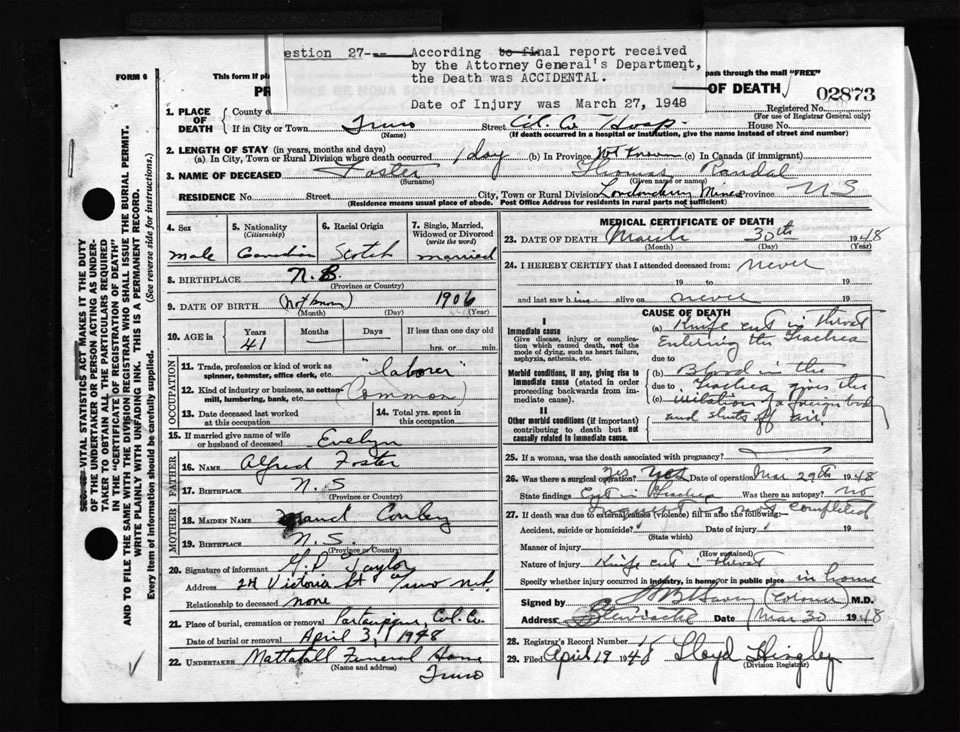 estion 27--- According to final report received
by the Attorney General's Department,
the Death was ACCIDENTAL.
Date of Injury was March 27, 1948
FORM 6
This form if pla
pass through the mail "FREE"
PR
OF DEATH
02873
1. PLACE OF DEATH
County of
Registered No.
(For use of Registrar General only)
If in City or Town Truro Street Col. Co. Hosp. House No.
(Name) (If death occurred in a hospital or institution, give the name instead of street and number)
2. LENGTH OF STAY (in years, months and days)
(a) In City, Town or Rural Division where death occurred 1 day (b) In Province Not Known (c) In Canada (if immigrant)
3. NAME OF DECEASED Foster Thomas Randal
(Surname) (Given name or names)
RESIDENCE No. Street City, Town or Rural Division Londonderry Mines Province N S
(Residence means usual place of abode. Post Office Address for residents in rural parts not sufficient)
4. Sex male
5. Nationality (Citizenship) Canadian
6. Racial Origin Scotch
7. Single, Married, Widowed or Divorced (write the word) married
8. BIRTHPLACE N.B.
(Province or Country)
9. DATE OF BIRTH (Not known) 1906
(Month) (Day) (Year)
10. AGE if Years 41 Months Days If less than one day old
hrs. or min.
OCCUPATION
11. Trade, profession or kind of work as spinner, teamster, office clerk, etc. "laborer"
12. Kind of industry or business, as cotton mill, lumbering, bank, etc. (Common)
13. Date deceased last worked at this occupation
14. Total yrs. spent in this occupation
15. If married give name of wife or husband of deceased Evelyn
FATHER
16. NAME Alfred Foster
17. BIRTHPLACE N.S
(Province or Country)
MOTHER
18. MAIDEN NAME Maud
19. BIRTHPLACE N.S.
(Province or Country)
20. Signature of informant Taylor
Address 24 Victoria St Truro N.S.
Relationship to deceased none
21. Place of burial, cremation or removal Col. Co.
Date of burial or removal April 3, 1948
22. UNDERTAKER Mattatall Funeral Home
(Name and address)
Truro
MEDICAL CERTIFICATE OF DEATH
23. DATE OF DEATH March 30th 1948
(Month) (Day) (Year)
24. I HEREBY CERTIFY that I attended deceased from: never
19 to 19
and last saw him alive on never 19
CAUSE OF DEATH
I
Immediate cause
Give disease, injury or complication which caused death, not the mode of dying, such as heart failure, asphyxia, asthenia, etc.
(a) Knife cut in throat
Entering the Trachea
due to
Morbid conditions, if any, giving rise to immediate cause (stated in order proceeding backwards from immediate cause).
(b) Blood in the
due to Trachea gives the
(c) irritation of a foreign body
and shuts off air.
II
Other morbid conditions (if important) contributing to death but not causally related to immediate cause.
25. If a woman, was the death associated with pregnancy?
26. Was there a surgical operation? Yes Yes Date of operation Mar 29th 1948
State findings Cut in Trachea Was there an autopsy? No
Inquest is not completed
27. If death was due to external causes (violence) fill in also the following:-
Accident, suicide or homicide? Date of injury 19
(State which)
Manner of injury
(How sustained)
Nature of injury Knife cut in throat
Specify whether injury occurred in industry, in home or in public place in home
Signed by (Coroner) M.D.
Address Date Mar 30 1948
28. Registrar's Record Number
29. Filed April 19 1948 Lloyd Hingley
(Division Registrar)
SEC. VITAL STATISTICS ACT MAKES IT THE DUTY
OF THE UNDERTAKER OR PERSON ACTING AS UNDER-
TAKER TO OBTAIN ALL THE PARTICULARS REQUIRED
IN THE "CERTIFICATE OF REGISTRATION OF DEATH"
AND TO FILE THE SAME WITH THE DIVISION REGISTRAR WHO SHALL ISSUE THE BURIAL PERMIT.
WRITE PLAINLY WITH UNFADING INK. THIS IS A PERMANENT RECORD.
Every item of information should be carefully supplied. (See reverse side for instructions.)